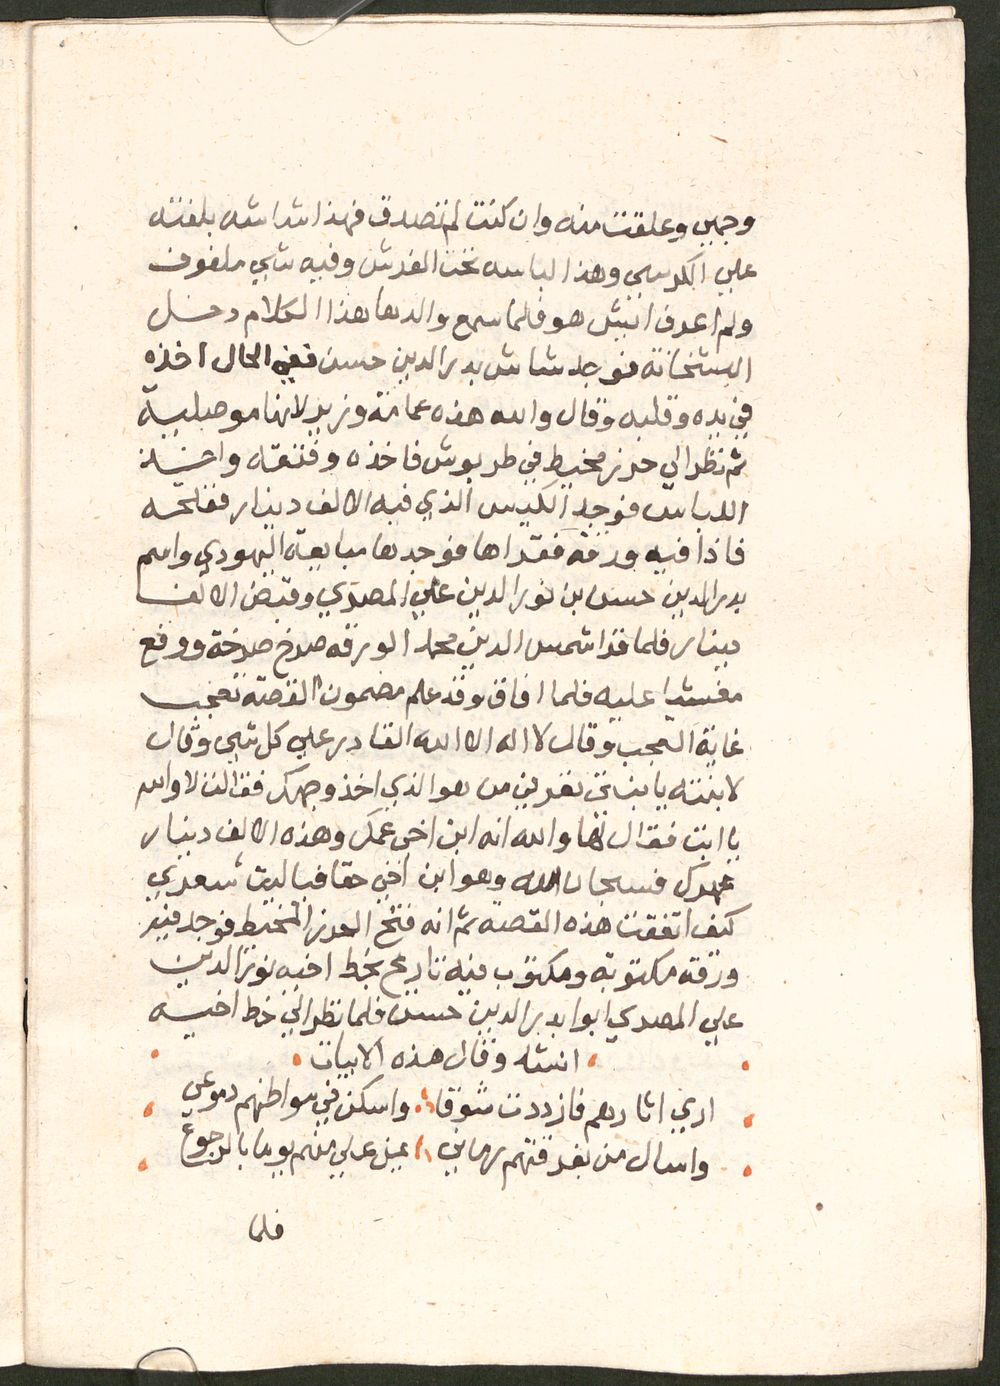 وجهي وعلقت منه وان كنت لم تصدق فهذا شداشه بلفته
علي الكرسي وهذا لباسه تحت الفرش وفيه شي ملفوف
ولم اعرف ايش هو فلما سمع والدها هذا الكلام دخل
البشخانة فوجد شاش بدر الدين حسن ففي الحال اخذه
في يده وقلبه وقال والله هذه عمامة وزير لانها موصلية
ثم نظر الي حرز مخيط في طربوش فاخذه وفتقه واخذ
اللباس فوجد الكيس الذي فيه الالف دينار ففتحه
فاذا فيه ورقة فقراها فوجدها مبايعة اليهودي واسم
بدر الدين حسن بن نور الدين علي المصري وقبض الالف
دينار فلما قرا شمس الدين محمد الورقه صرخ صرخة ووقع
مغشيا عليه فلما افاق وقد علم مضمون القصة تعجب
غاية العجب وقال لا اله الا الله القادر علي كل شي وقال
لابنته يا بنتي تعرفين من هو الذي اخذ وجهك فقالت لا والله
يا ابت فقال لها والله انه ابن اخي عمك وهذه الالف دينار
مهرك فسبحان الله وهو ابن اخي حقا فياليت شعري
كيف اتفقت هذه القصه ثم انه فتح الحرز المخيط فوجد فيه
ورقة مكتوبة ومكتوب فيه تاريخ بخط اخيه نور الدين
علي المصري ابوا بدر الدين حسن فلما نظر الي خط اخيه
انشد وقال هذه الابيات
اري اثارهم فازددت شوقا واسكن في مواطنهم دموعي
واسال من بفرقتهم رماني يمن علي منهم يوما بالرجوع
فلما